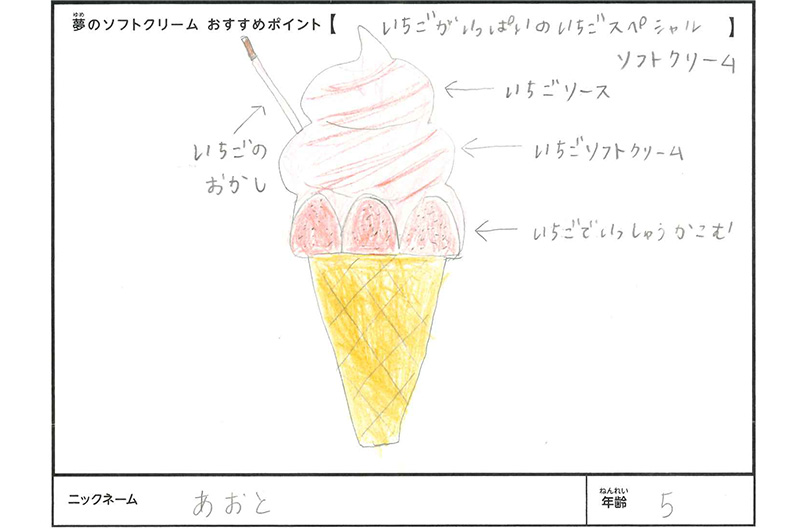 ゆめ
夢のソフトクリーム おすすめポイント【 いちごがいっぱいのいちごスペシャル 】
ソフトクリーム
いちごソース
いちごの
おかし
いちごソフトクリーム
いちごでいっしゅうかこむ
ニックネーム あおと
ねんれい
年齢 5